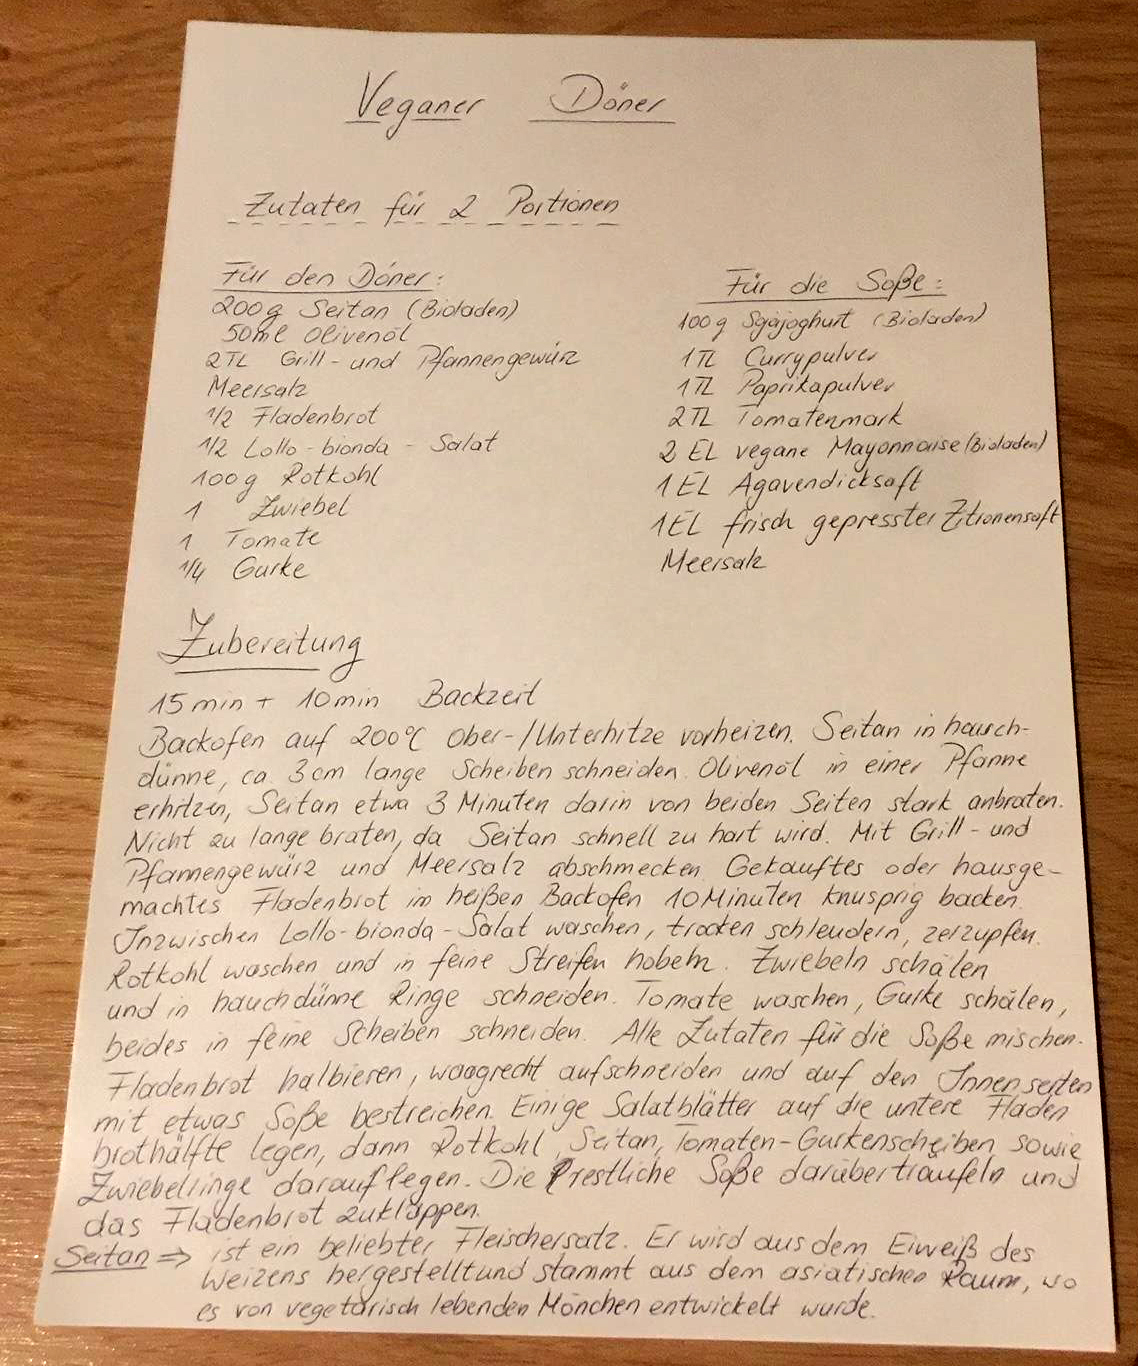 Veganer Döner
Zutaten für 2 Portionen
Für den Döner:
200g Seitan (Bioladen)
50ml Olivenöl
2TL Grill- und Pfannengewürz
Meersalz
1/2 Fladenbrot
1/2 Lollo-bionda-Salat
100g Rotkohl
1 Zwiebel
1 Tomate
1/4 Gurke
Für die Soße:
100g Sojajoghurt (Bioladen)
1TL Currypulver
1TL Paprikapulver
2TL Tomatenmark
2 EL vegane Mayonnaise (Bioladen)
1EL Agavendicksaft
1EL frisch gepresster Zitronensaft
Meersalz
Zubereitung
15min + 10min Backzeit
Backofen auf 200°C Ober-/Unterhitze vorheizen. Seitan in hauch-
dünne, ca. 3cm lange Scheiben schneiden. Olivenöl in einer Pfanne
erhitzen, Seitan etwa 3 Minuten darin von beiden Seiten stark anbraten.
Nicht zu lange braten, da Seitan schnell zu hart wird. Mit Grill- und
Pfannengewürz und Meersalz abschmecken. Gekauftes oder hausge-
machtes Fladenbrot im heißen Backofen 10Minuten knusprig backen.
Inzwischen Lollo-bionda-Salat waschen, trocken schleudern, zerzupfen.
Rotkohl waschen und in feine Streifen hobeln. Zwiebeln schälen
und in hauchdünne Ringe schneiden. Tomate waschen, Gurke schälen,
beides in feine Scheiben schneiden. Alle Zutaten für die Soße mischen.
Fladenbrot halbieren, waagrecht aufschneiden und auf den Innenseiten
mit etwas Soße bestreichen. Einige Salatblätter auf die untere Fladen
brothälfte legen, dann Rotkohl, Seitan, Tomaten-Gurkenscheiben, sowie
Zwiebelringe darauf legen. Die restliche Soße darüberträufeln und
das Fladenbrot zuklappen.
Seitan ⇒ ist ein beliebter Fleischersatz. Er wird aus dem Eiweiß des
Weizens hergestellt und stammt aus dem asiatischen Raum, wo
es von vegetarisch lebenden Mönchen entwickelt wurde.